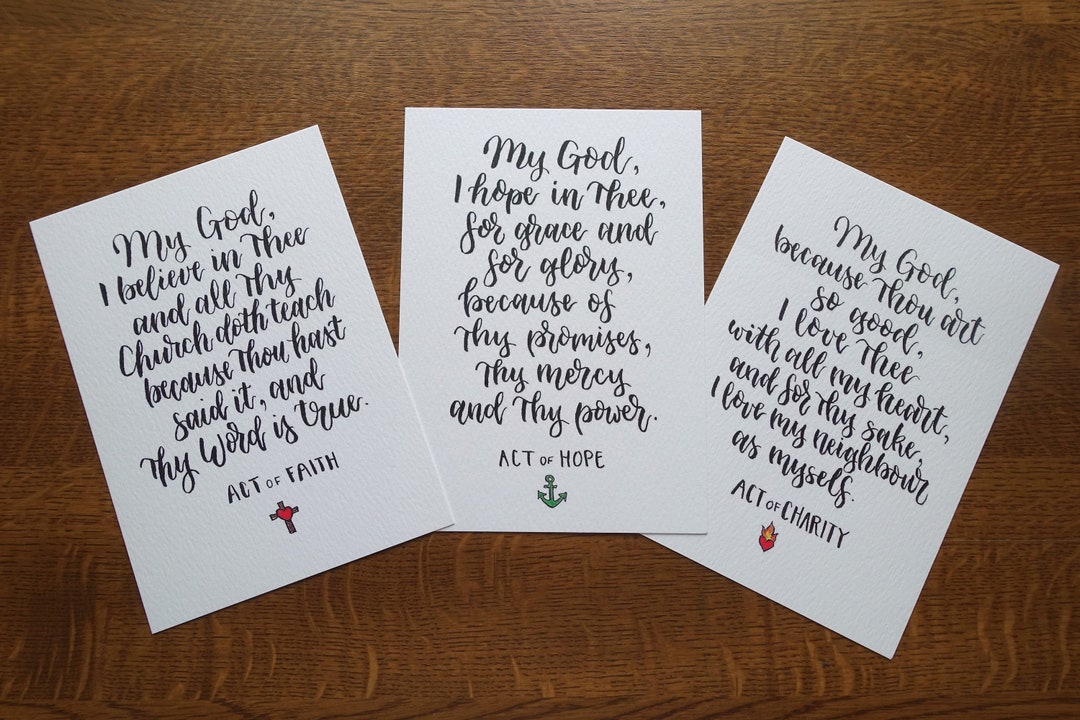 My God,
I believe in Thee
and all Thy
Church doth teach
because Thou hast
said it, and
Thy Word is true.
ACT OF FAITH
My God,
I hope in Thee,
for grace and
for glory,
because of
Thy promises,
Thy mercy
and Thy power.
ACT OF HOPE
My God,
because Thou art
so good,
I love Thee
with all my heart,
and for Thy sake,
I love my neighbour
as myself.
ACT OF CHARITY